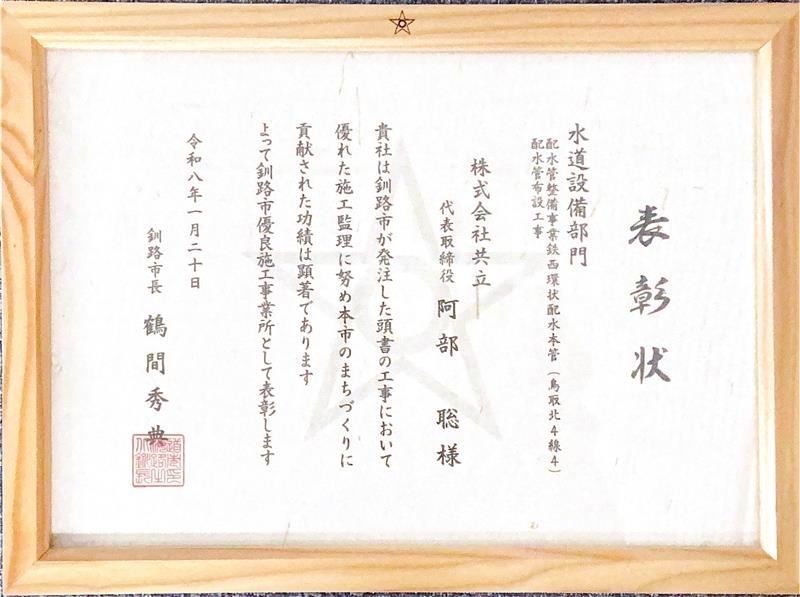 表彰状
水道設備部門
配水管整備事業鉄西環状配水本管（鳥取北4線4）
配水管布設工事
株式会社共立
代表取締役 阿部 聡様
貴社は釧路市が発注した頭書の工事において
優れた施工監理に努め本市のまちづくりに
貢献された功績は顕著であります
よって釧路市優良施工事業所として表彰します
令和八年一月二十日
釧路市長 鶴間秀典